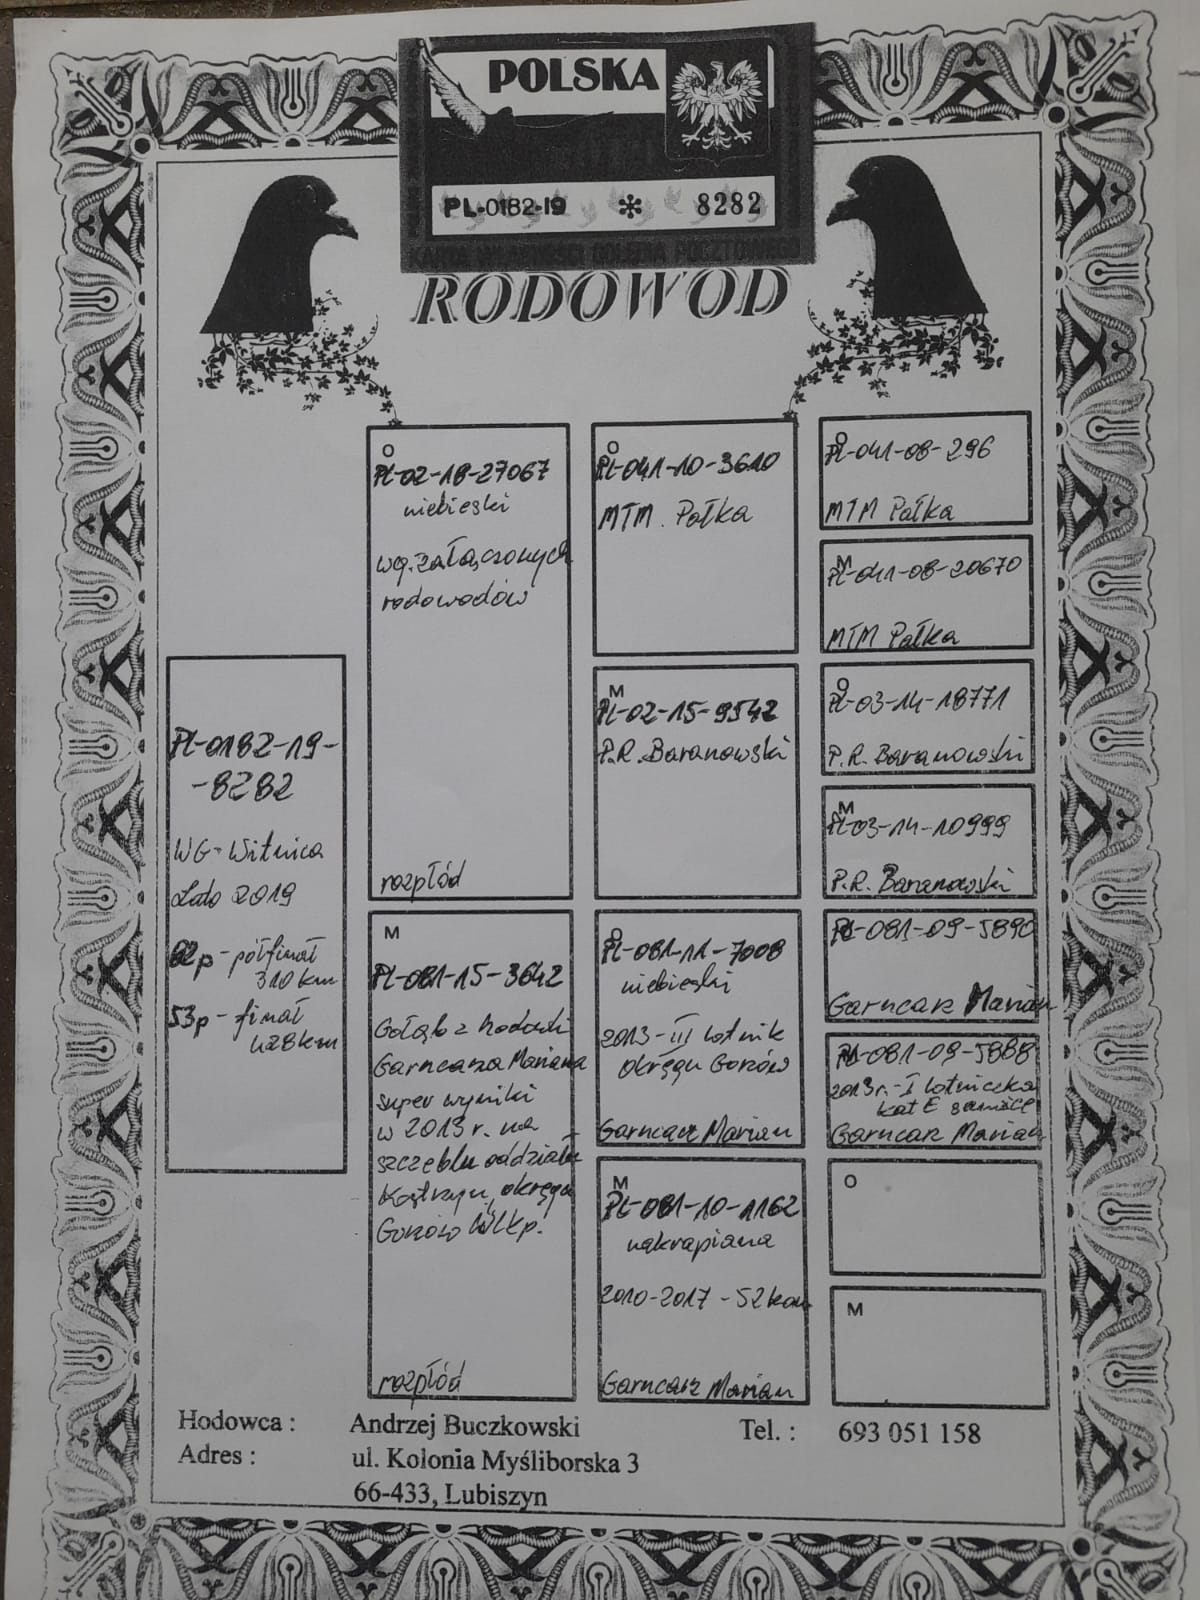 POLSKA
PL-0182-19 * 8282
KARTA WŁASNOŚCI GOŁĘBIA POCZTOWEGO
RODOWOD
PL-0182-19-
-8282
WG-Witnica
Lato 2019
82p - półfinał
310km
53p - finał
428km
O
PL-02-18-27067
niebieski
wg. załączonych
rodowodów
rozpłód
M
PL-081-15-3642
Gołąb z hodowli
Garncarza Mariana
super wyniki
w 2013 r. na
szczeblu oddziału
Kostrzyn, okręgu
Gorzów Wlkp!
rozpłód
O
PL-041-10-3610
MTM. Pałka
M
PL-02-15-9542
P.R. Baranowski
O
PL-081-11-7008
niebieski
2013-III lotnik
okręgu Gorzów
Garncarz Marian
M
PL-081-10-1162
nakrapiana
2010-2017 - 52 kon
Garncarz Marian
O
PL-041-08-296
MTM Pałka
M
PL-041-08-20670
MTM Pałka
O
PL-03-14-18771
P.R. Baranowski
M
PL-03-14-10999
P.R. Baranowski
PL-081-09-5890
Garncarz Marian
PL-081-09-5888
2013r.-I lotniczka
kat E samice
Garncarz Marian
O
M
Hodowca : Andrzej Buczkowski Tel. : 693 051 158
Adres : ul. Kolonia Myśliborska 3
66-433, Lubiszyn